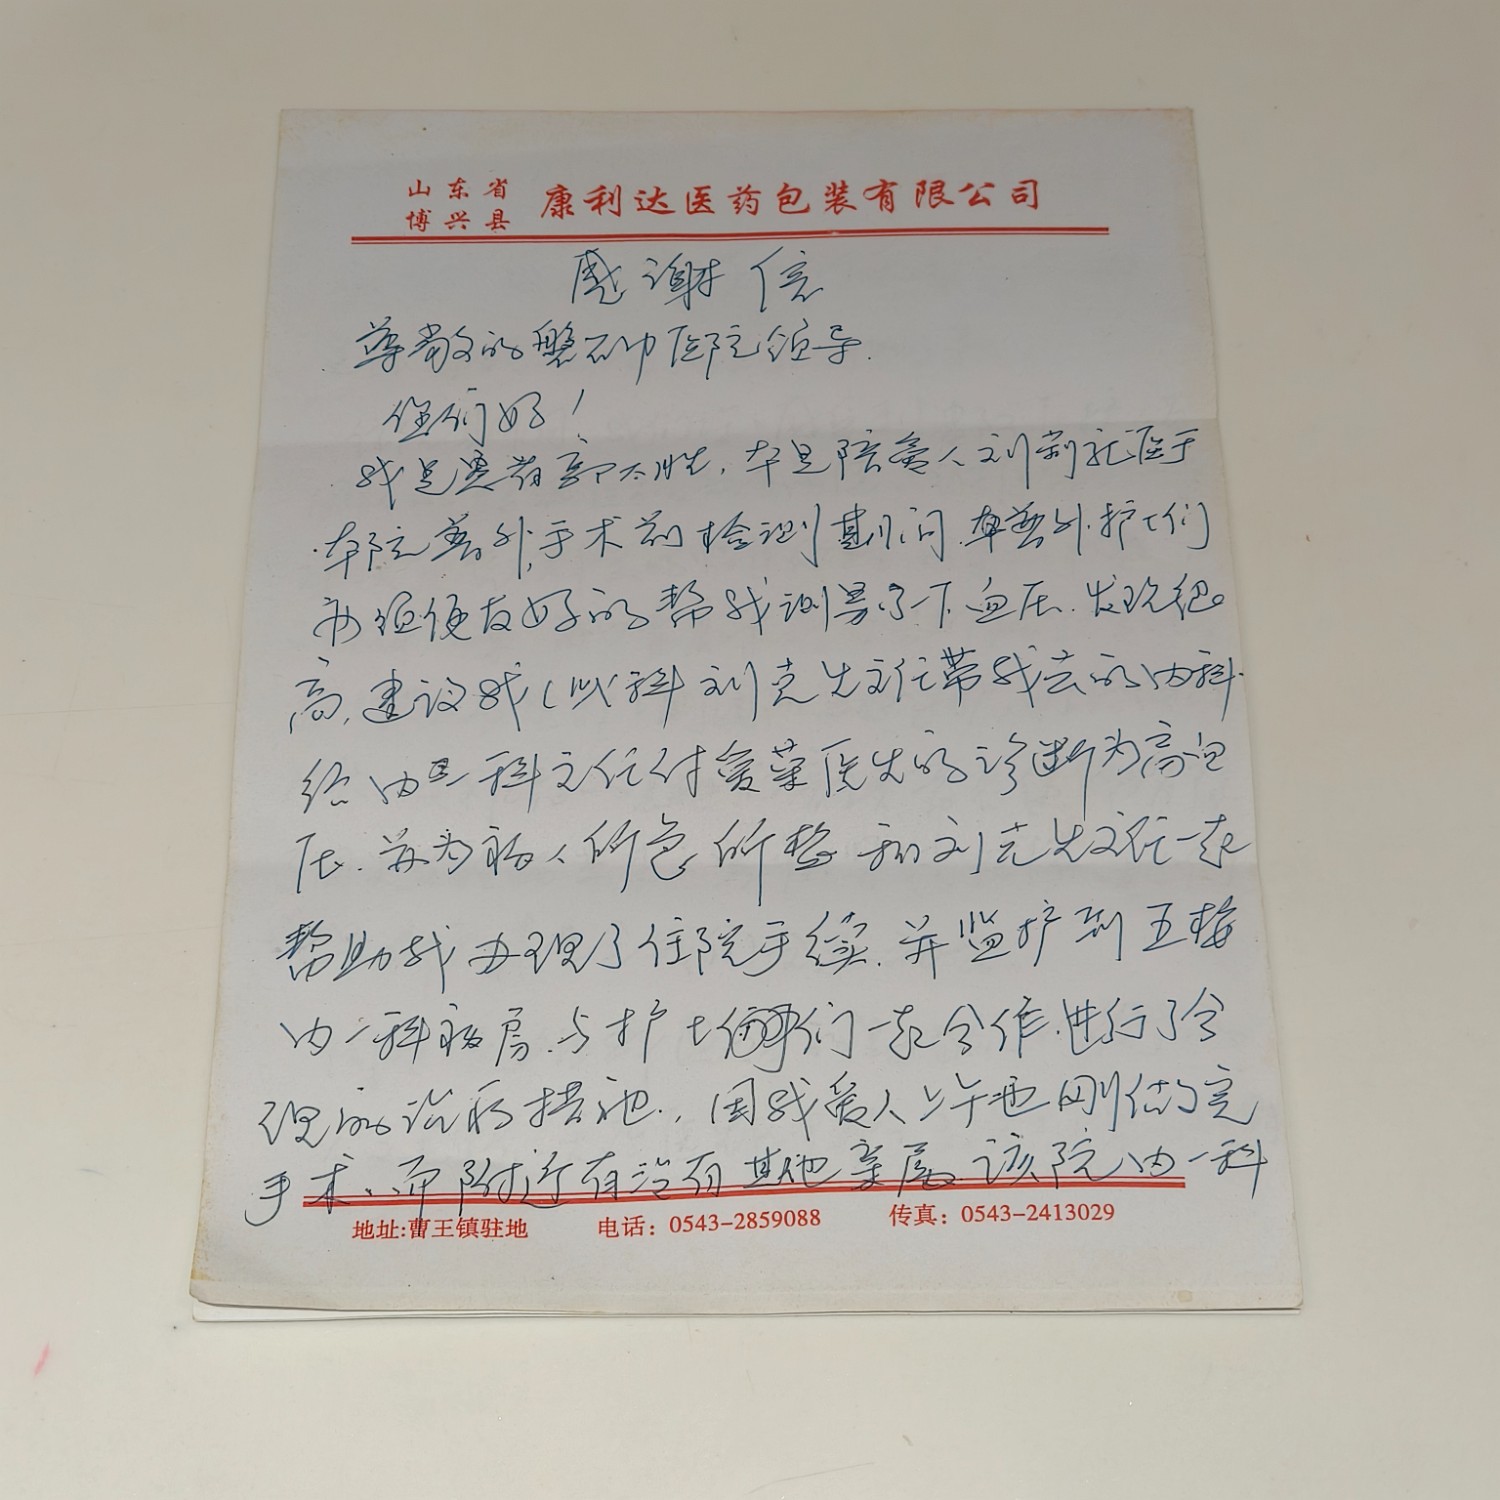 山东省
博兴县 康利达医药包装有限公司
感谢信
尊敬的磐石中医院领导.
你们好!
我是患者郭太胜,本是陪爱人刘莉就医于
本院普外,手术前检测期间.本普外.护士们
友好的帮我测量了一下血压.发现很
高,建设我(外科刘克先主任带我去的内科.
给内一科主任付爱荣医生的诊断为高血
压.并为病人所急所想和刘克先主任一起
帮助我办理了住院手续.并监护到五楼
内一科病房.与护士们一起合作.进行了合
理的治疗措施.,因我爱人上午也刚做完
手术.而附近有没有其他亲属.该院内一科
地址:曹王镇驻地 电话:0543-2859088 传真:0543-2413029